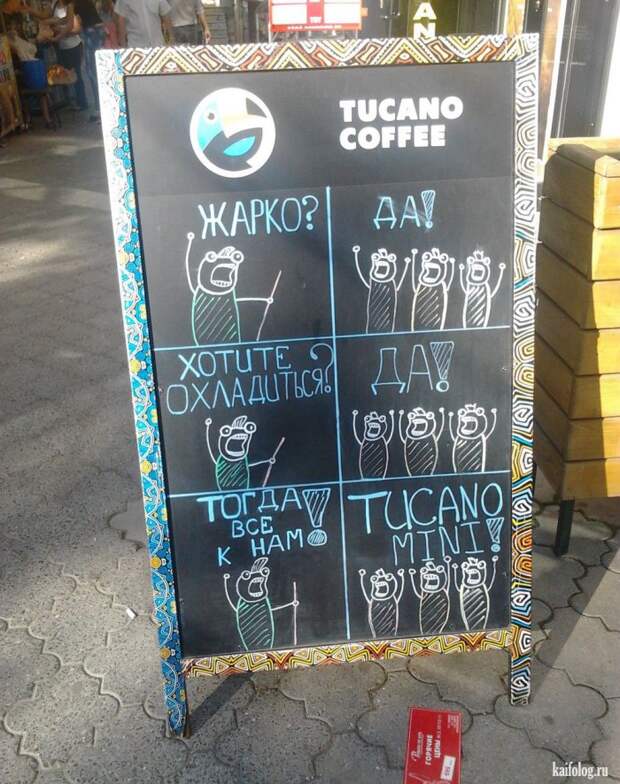 AN
TUCANO
COFFEE
ЖАРКО?
ДА!
ХОТИТЕ
ОХЛАДИТЬСЯ?
ДА!
ТОГДА
ВСЕ
К НАМ!
TUCANO
MINI!
ГОРЯЧИЕ
ЦЕНЫ
kaifolog.ru